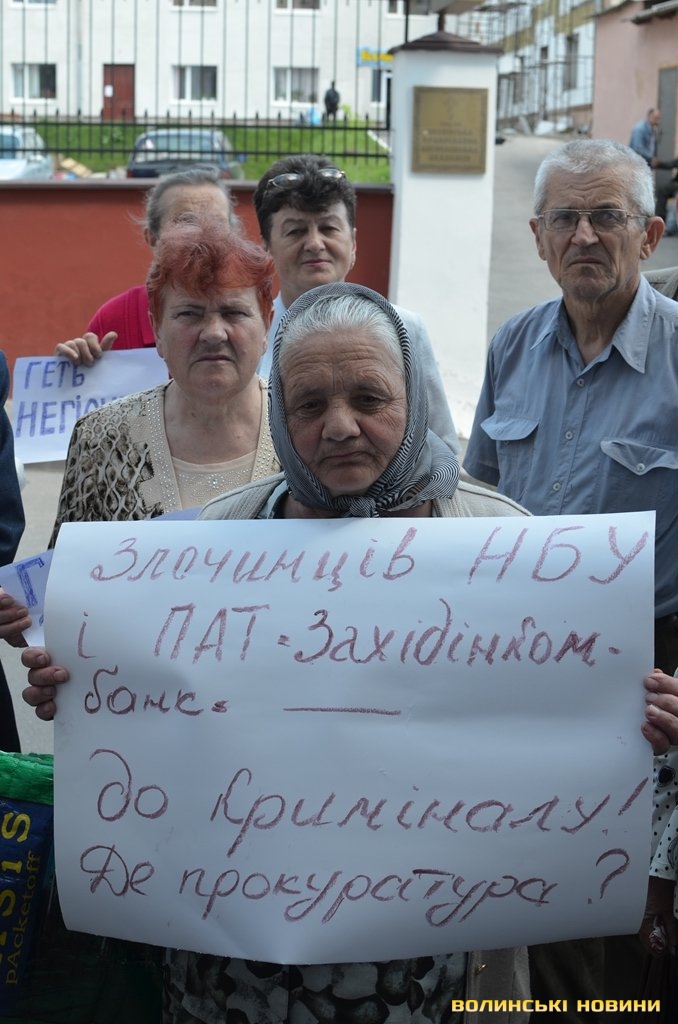 ГЕТЬ
Злочинців НБУ
і ПАТ "Західінком-
банк" —
до криміналу!
Де прокуратура?
SIS
PACKETOFF
ВОЛИНСЬКІ НОВИНИ